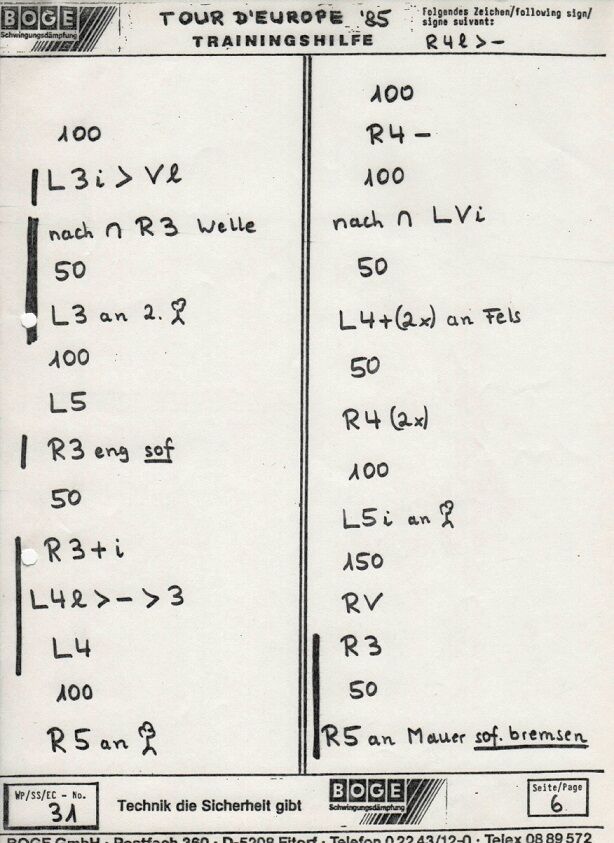 BOGE
Schwingungsdämpfung
TOUR D'EUROPE '85
TRAININGSHILFE
Folgendes Zeichen/following sign/
signe suivant:
R4l>–
100
L3i > Vl
nach ∩ R3 Welle
50
L3 an 2.
100
L5
R3 eng sof
50
R3+i
L4l>–>3
L4
100
R5 an
100
R4–
100
nach ∩ LVi
50
L4+(2x) an Fels
50
R4(2x)
100
L5i an
150
RV
R3
50
R5 an Mauer sof. bremsen
WP/SS/EC - No.
31
Technik die Sicherheit gibt
BOGE
Schwingungsdämpfung
Seite/Page
6
BOGE GmbH · Postfach 360 · D-5208 Eitorf · Telefon 0 22 43/12-0 · Telex 08 89 572